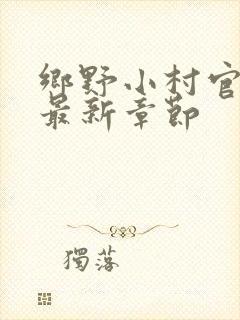 鄉野小村官
最新章節
獨落